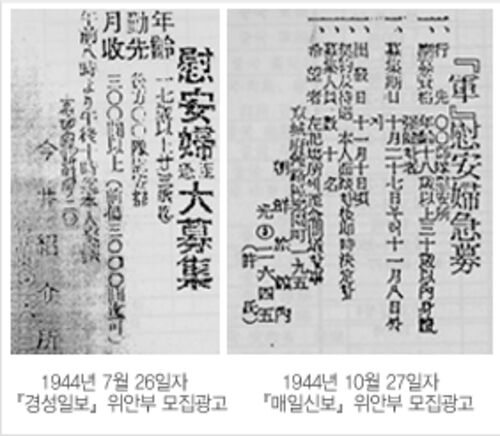 慰安婦至急大募集
年齢 一七歳以上廿三歳迄
勤先 後方〇〇隊慰安部
月収 三〇〇圓以上（前借三〇〇〇圓迄可）
午前八時より午後十時迄本人来談
今井紹介所
1944년 7월 26일자
『경성일보』 위안부 모집광고
『軍』慰安婦急募
一、行先 〇〇部隊慰安所
一、應募資格 年齢十八歳以上三十歳以內身體
一、募集期日 十月二十七日부터十一月八日
一、出發日 十一月十日頃
一、契約及待遇 本人面談後即時決定
一、募集人員 數十名
一、希望者 左記場所에
京城府
朝鮮旅館內
光③二六四五
（許氏）
1944년 10월 27일자
『매일신보』 위안부 모집광고